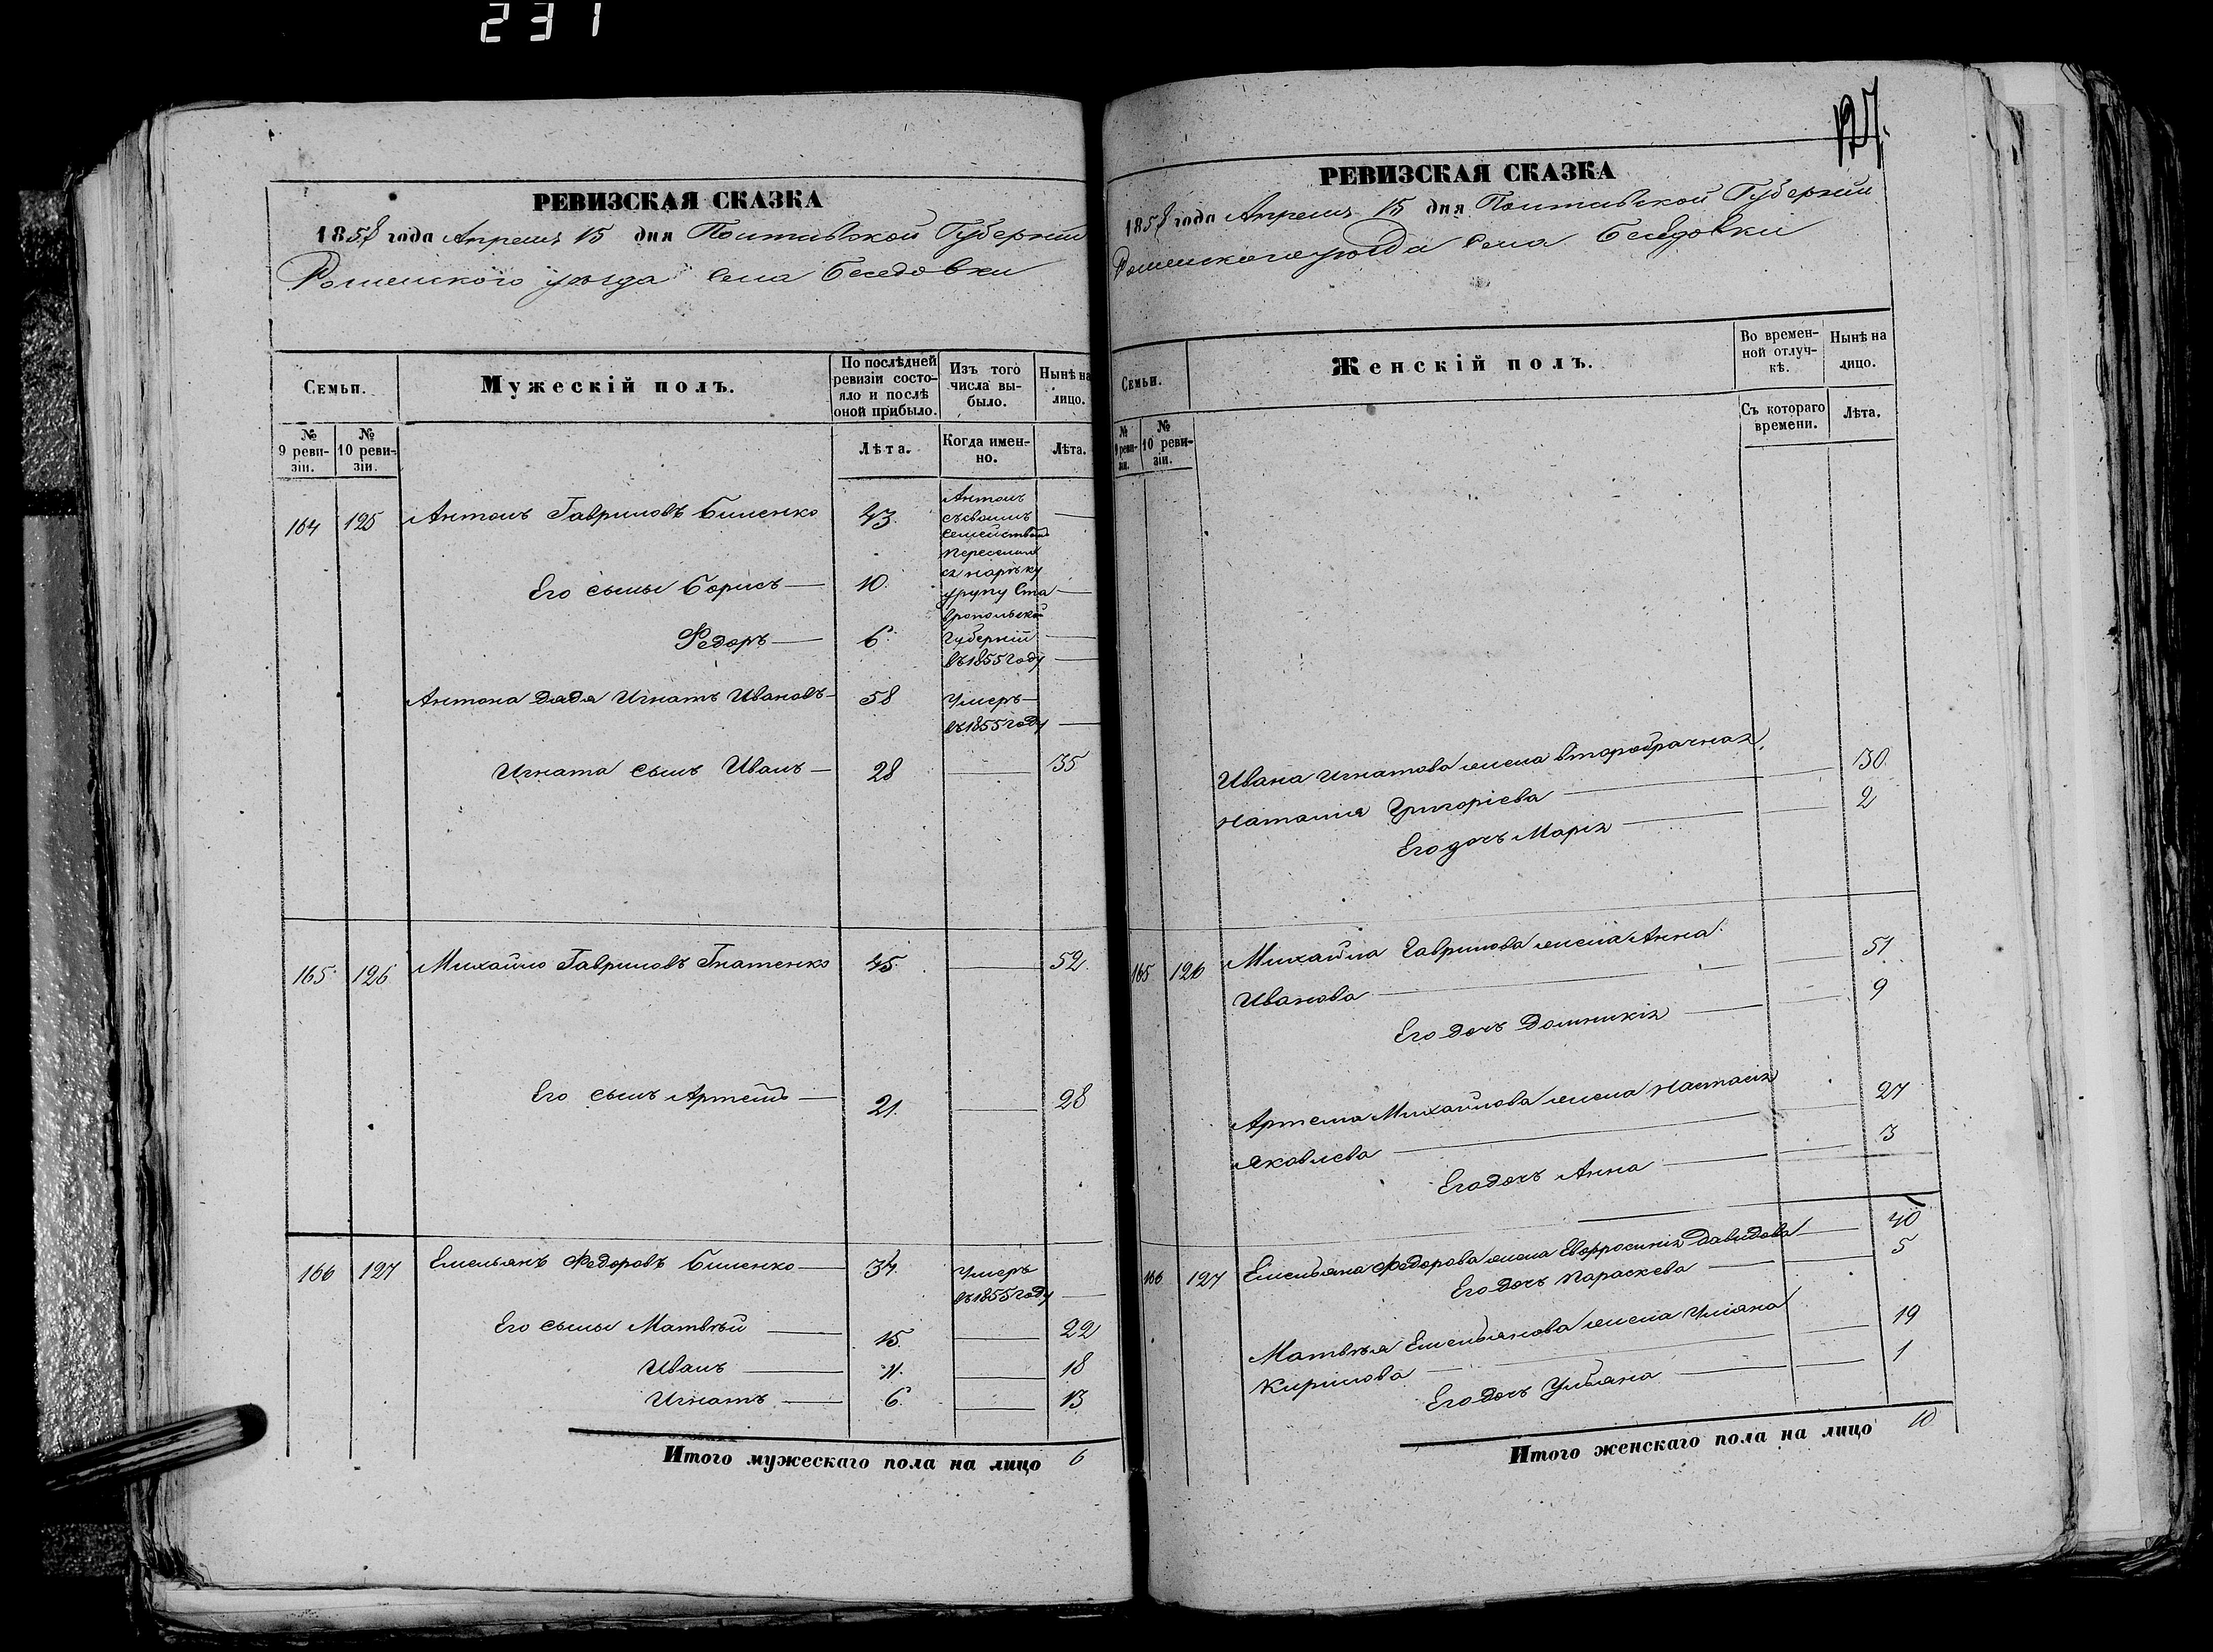 231
РЕВИЗСКАЯ СКАЗКА
1858 года Апреля 15 дня Полтавской Губерніи
Роменского уѣзда Села Беседовки
Семьи.
Мужескій полъ.
По послѣдней ревизіи состояло и послѣ оной прибыло.
Изъ того числа выбыло.
Нынѣ на лицо.
№ 9 ревизіи.
№ 10 ревизіи.
Лѣта.
Когда именно.
Лѣта.
164 125 Антонъ Гавриловъ Биленко 43.
Антонъ
съ своимъ
семействомъ
переселил
ся на рѣку
урупу Ста
вропольской
Губерніи
въ 1855 году
Его сыны Борисъ 10.
Федоръ 6.
Антона дядя Игнатъ Ивановъ 58 Умеръ
въ 1855 году
Игната сынъ Иванъ 28 35
165 126 Михайло Гавриловъ Гнатенко 45. 52.
Его сынъ Артемъ 21. 28
166 127 Емельянъ Федоровъ Биленко 34. Умеръ
въ 1855 году
Его сыны Матвѣй 15. 22
Иванъ 11. 18
Игнатъ 6. 13
Итого мужескаго пола на лицо 6
127.
РЕВИЗСКАЯ СКАЗКА
1858 года Апреля 15 дня Полтавской Губерніи
Роменского уѣзда Села Беседовки
Семьи.
Женскій полъ.
Во временной отлучкѣ.
Нынѣ на лицо.
№ 9 ревизіи.
№ 10 ревизіи.
Съ котораго времени.
Лѣта.
Ивана Игнатова жена второбрачная
Наталия Григоріева 30.
Его дочь Марія 2
165 126 Михайла Гаврилова жена Анна
Иванова 51
Его дочь Домникія 9
Артема Михайлова жена Настасія
Яковлева 27
Его дочь Анна 3
166 127 Емельяна Федорова жена Евфросинія Давидова 40
Его дочь Параскева 5
Матвѣя Емельянова жена Уліяна
Кирилова 19
Его дочь Ульяна 1
Итого женскаго пола на лицо 10